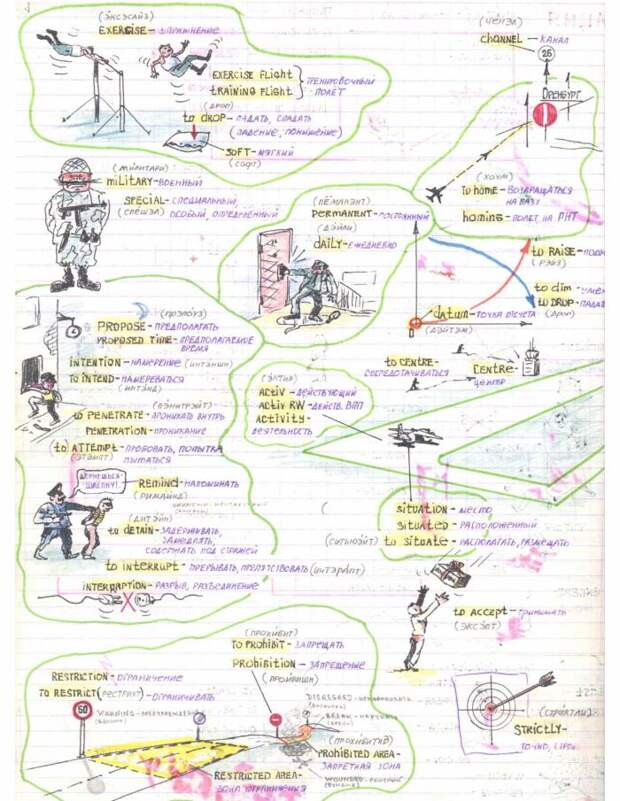 (ЭКСЭСАЙЗ)
EXERCISE - УПРАЖНЕНИЕ
EXERCISE FLIGHT
TRAINING FLIGHT
ТРЕНИРОВОЧНЫЙ
ПОЛЁТ
(ДРОП)
to DROP - ПАДАТЬ, СПАДАТЬ
(ПАДЕНИЕ, ПОНИЖЕНИЕ)
SOFT - МЯГКИЙ
(СОФТ)
(ЧЕНЭЛ)
channel - КАНАЛ
26
ОРЕНБУРГ
(ХОУМ)
to home - ВОЗВРАЩАТЬСЯ
НА БАЗУ
homing - ПОЛЕТ НА РНТ
(МИЛИТАРИ)
MILITARY - ВОЕННЫЙ
SPECIAL - СПЕЦИАЛЬНЫЙ,
(СПЕШЭЛ) ОСОБЫЙ, ОПРЕДЕЛЁННЫЙ
(ПЁМАНЭНТ)
PERMANENT - ПОСТОЯННЫЙ
(ДЭЙЛИ)
DAILY - ЕЖЕДНЕВНО
to RAISE -
(РЭЙЗ)
to dim -
to DROP -
(ДРОП)
datum - ТОЧКА ОТСЧЕТА
(ДЭЙТЭМ)
(ПРЭПОУЗ)
PROPOSE - ПРЕДПОЛАГАТЬ
PROPOSED TIME - ПРЕДПОЛАГАЕМОЕ
ВРЕМЯ
INTENTION - НАМЕРЕНИЕ (ИНТЭНШН)
TO INTEND - НАМЕРЕВАТЬСЯ
(ИНТЭНД)
(ПЭНИТРЭЙТ)
to PENETRATE - ПРОНИКАТЬ ВНУТРЬ
PENETRATION - ПРОНИКАНИЕ
(to) ATTEMPT - ПРОБОВАТЬ, ПОПЫТКА
(ЭТЭМПТ) ПЫТАТЬСЯ
to CENTRE -
СОСРЕДОТАЧИВАТЬСЯ
CENTRE -
ЦЕНТР
(ЭКТИВ)
ACTIV - ДЕЙСТВУЮЩИЙ
ACTIV RW - ДЕЙСТВ. ВПП
ACTIVITY -
ДЕЯТЕЛЬНОСТЬ
REMIND - НАПОМИНАТЬ
(РИМАЙНД)
(ДИТЭЙН)
to DETAIN - ЗАДЕРЖИВАТЬ,
ЗАМЕДЛЯТЬ,
СОДЕРЖАТЬ ПОД СТРАЖЕЙ
to INTERRUPT - ПРЕРЫВАТЬ, ПРЕПЯТСТВОВАТЬ (ИНТЭРАПТ)
INTERRAPTION - РАЗРЫВ, РАЗЪЕДИНЕНИЕ
SITUATION - МЕСТО
SITUATED - РАСПОЛОЖЕННЫЙ
(СИТЬЮЭЙТ) to SITUATE - РАСПОЛАГАТЬ, РАЗМЕЩАТЬ
to ACCEPT - ПРИНИМАТЬ
(ЭКСЭПТ)
(ПРОХИБИТ)
TO PROHIBIT - ЗАПРЕЩАТЬ
PROHIBITION - ЗАПРЕЩЕНИЕ
RESTRICTION - ОГРАНИЧЕНИЕ
TO RESTRICT (РЕСТРИКТ) - ОГРАНИЧИВАТЬ
50
(ПРОХИБИТИД)
PROHIBITED AREA -
ЗАПРЕТНАЯ ЗОНА
RESTRICTED AREA -
ЗОНА ОГРАНИЧЕНИЯ
STRICLY -